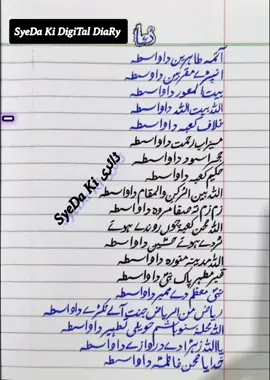 SyeDa Ki DigiTal DiaRy
دعا
آئمہ طاہرین دا واسطہ
اپنے مقربین دا واسطہ
بیت المعمور دا واسطہ
اللہ بیت اللہ دا واسطہ
غلاف کعبہ دا واسطہ
میزاب رحمت دا واسطہ
حجر اسود دا واسطہ
حطیم کعبہ دا واسطہ
اللہ بین الرکن والمقام دا واسطہ
زم زم تہ صفا مروہ دا واسطہ
اللہ صحن کعبہ چوں روندے ہوئے
ٹردے ہوئے حسین دا واسطہ
اللہ مدینہ منورہ دا واسطہ
قبر مطہر پاک نبی دا واسطہ
نبی معظم دے ممبر دا واسطہ
ریاض من الریاض جنت آلے ٹکڑے دا واسطہ
اللہ محلہ بنو ہاشم حویلی تطہیر دا واسطہ
یا اللہ زہرا دے دروازے دا واسطہ
خدایا صحن فاطمہ دا واسطہ
SyeDa Ki ڈائری